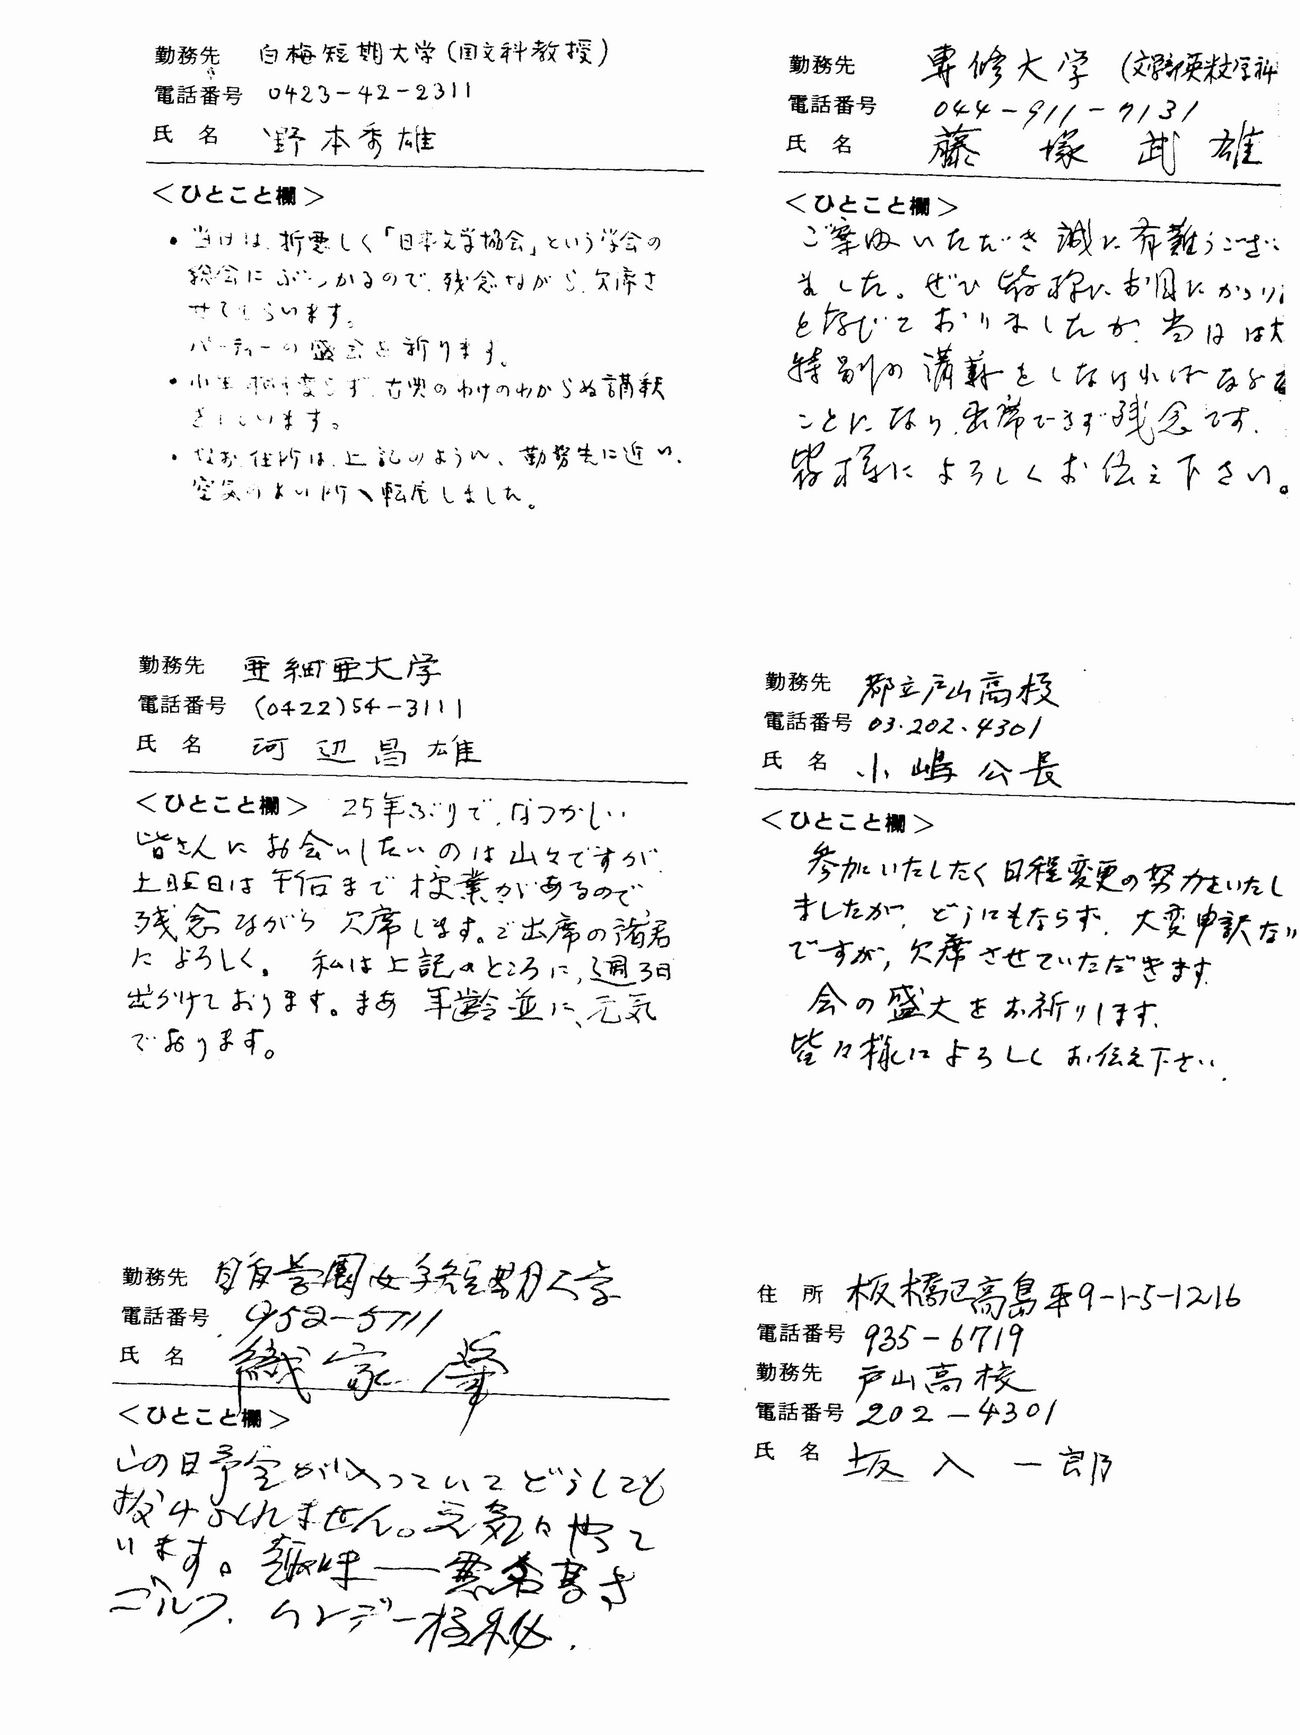 勤務先 白梅短期大学(国文科教授)
電話番号 0423-42-2311
氏名 野本秀雄
<ひとこと欄>
・当日は、折悪しく「日本文学協会」という学会の
総会にぶつかるので、残念ながら、欠席さ
せてもらいます。
パーティーの盛会を祈ります。
・小生相も変らず、古典のわけのわからぬ講釈
をしています。
・なお、住所は、上記のように、勤務先に近い、
空気のよい所へ転居しました。
専修大学 (文学部英米文学科
勤務先
電話番号 044-911-7131
氏名 藤塚武雄
<ひとこと欄>
ご案内いただき誠に有難うござい
ました。ぜひ皆様にお目にかかり
と存じておりましたが、当日は大
特別の講義をしなければなら
ことになり、出席できず残念です。
皆様によろしくお伝え下さい。
勤務先 亜細亜大学
電話番号 (0422)54-3111
氏名 河辺昌雄
<ひとこと欄> 25年ぶりで、なつかしい
皆さんにお会いしたいのは山々ですが、
土曜日は午后まで授業があるので
残念ながら欠席します。ご出席の諸君
によろしく。 私は上記のところに、週3日
出かけております。まあ年齢並に、元気
であります。
勤務先 都立戸山高校
電話番号 03.202.4301
氏名 小嶋公長
<ひとこと欄>
参加いたしたく日程変更の努力をいたし
ましたが、どうにもならず、大変申訳ない
ですが、欠席させていただきます。
会の盛大をお祈りします。
皆々様によろしくお伝え下さい。
勤務先 学園女子短期大学
電話番号 952-5711
氏名 織家肇
<ひとこと欄>
この日予定が入っていてどうしても
抜けられません。元気でやって
います。趣味——悪名高き
ゴルフ、極秘。
住所 板橋区高島平9-1-5-1216
電話番号 935-6719
勤務先 戸山高校
電話番号 202-4301
氏名 坂入一郎